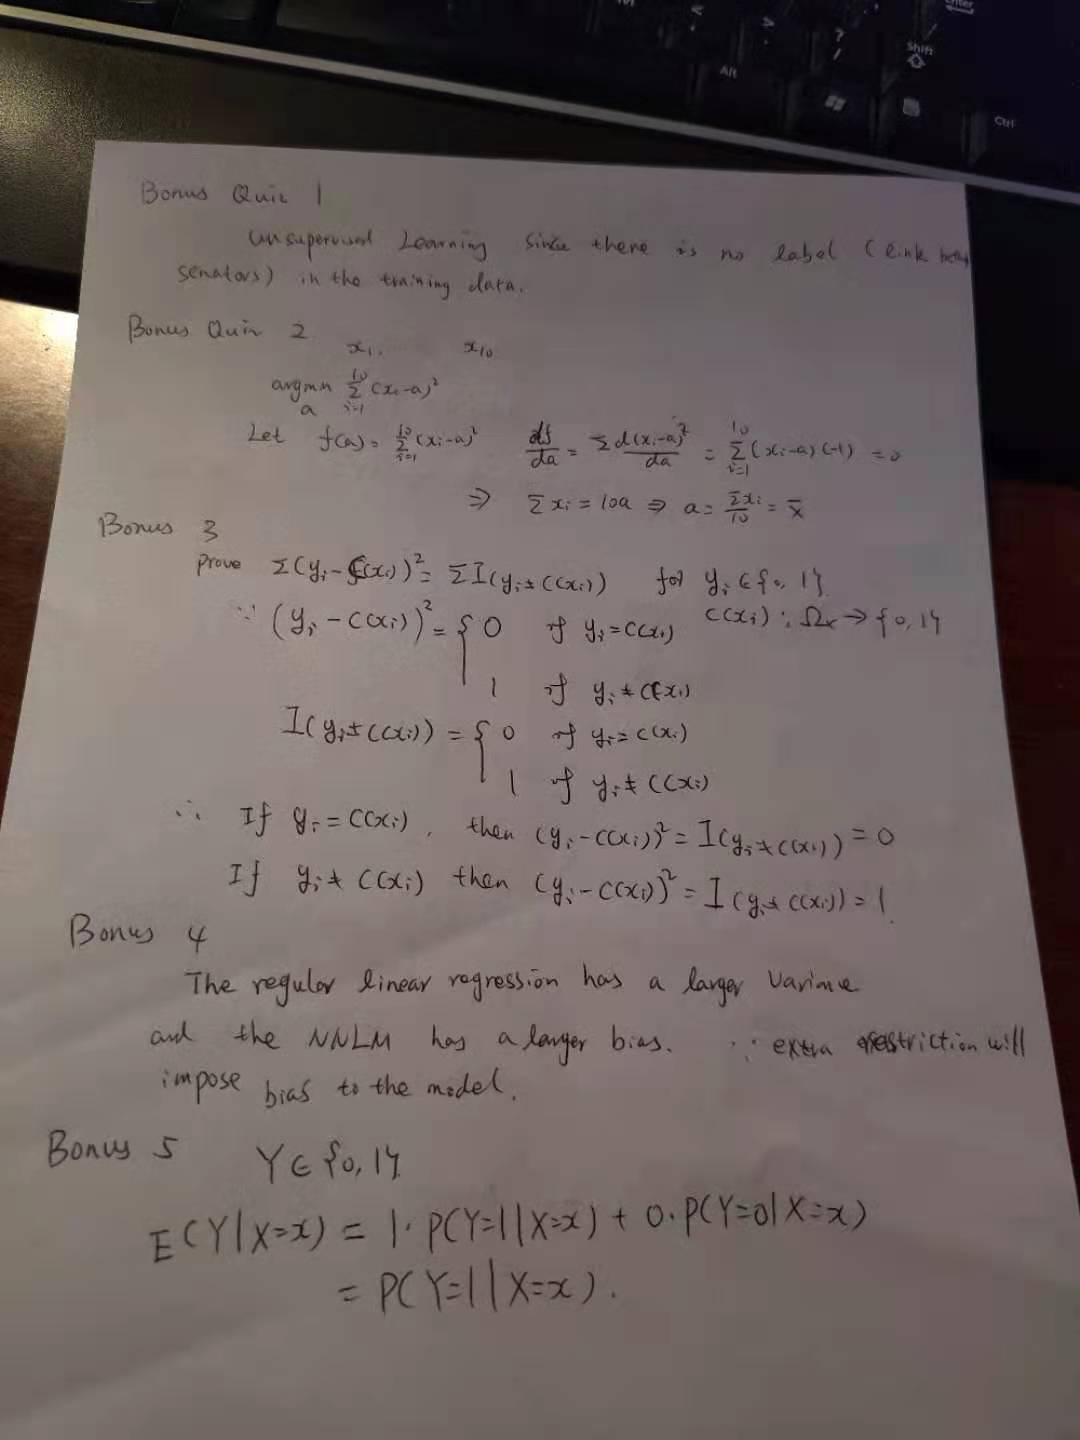 Enter
Shift
Alt
Ctrl
Bonus Quiz 1
Unsupervised Learning since there is no label (link
senators) in the training data.
Bonus Quiz 2
x₁. x₁₀
argmin_a Σ_{i=1}^{10} (xᵢ-a)²
Let f(a) = Σ_{i=1}^{10} (xᵢ-a)² df/da = Σ d(xᵢ-a)²/da = Σ_{i=1}^{10} (xᵢ-a)(-1) = 0
⇒ Σxᵢ = 10a ⇒ a = Σxᵢ/10 = x̄
Bonus 3
Prove Σ(yᵢ-C(xᵢ))² = ΣI(yᵢ≠C(xᵢ)) for yᵢ ∈ {0,1}
C(xᵢ): Ωₓ → {0,1}
∵ (yᵢ-C(xᵢ))² = { 0 if yᵢ=C(xᵢ)
1 if yᵢ≠C(xᵢ)
I(yᵢ≠C(xᵢ)) = { 0 if yᵢ=C(xᵢ)
1 if yᵢ≠C(xᵢ)
∴ If yᵢ=C(xᵢ), then (yᵢ-C(xᵢ))² = I(yᵢ≠C(xᵢ)) = 0
If yᵢ≠C(xᵢ) then (yᵢ-C(xᵢ))² = I(yᵢ≠C(xᵢ)) = 1.
Bonus 4
The regular linear regression has a larger variance
and the NNLM has a larger bias. ∵ extra restriction will
impose bias to the model.
Bonus 5 Y ∈ {0,1}
E(Y|X=x) = 1·P(Y=1|X=x) + 0·P(Y=0|X=x)
= P(Y=1|X=x).